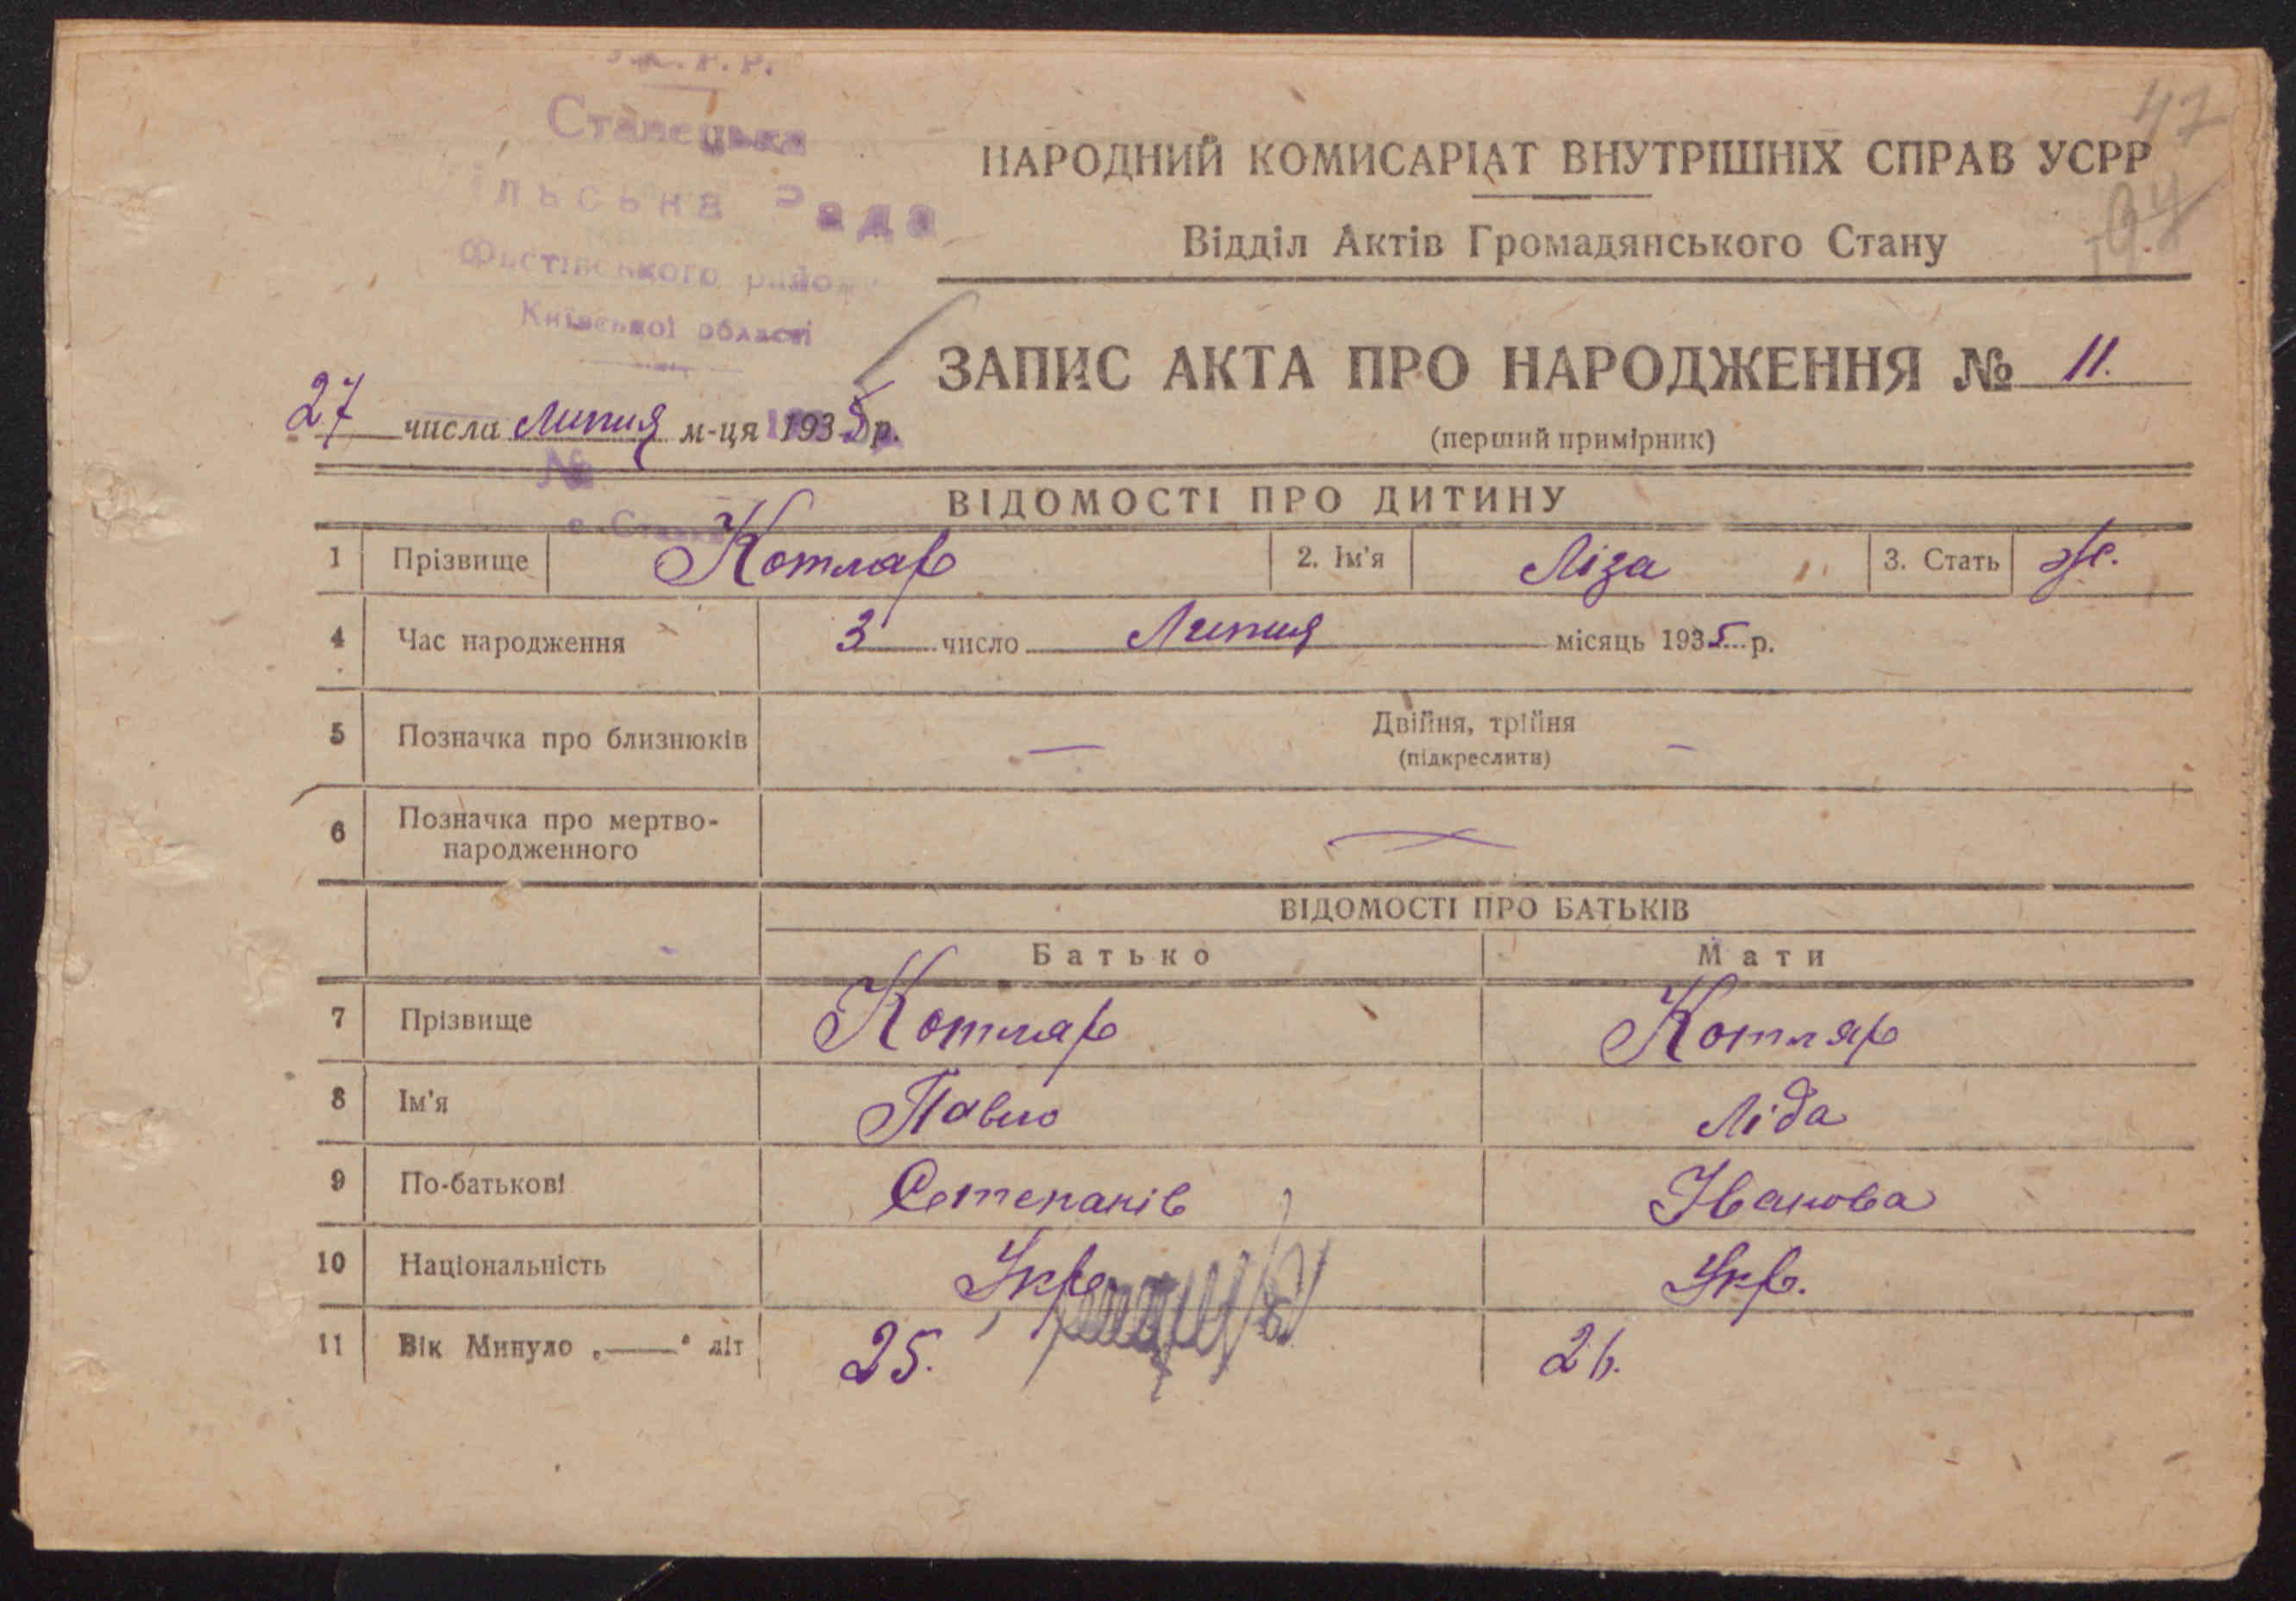 Ставецька
ільська Рада
Фастівського району
Київської області
47
НАРОДНИЙ КОМИСАРІАТ ВНУТРІШНІХ СПРАВ УСРР
Відділ Актів Громадянського Стану
ЗАПИС АКТА ПРО НАРОДЖЕННЯ № 11.
27 числа Липня м-ця 1935 р.
(перший примірник)
№
ВІДОМОСТІ ПРО ДИТИНУ
1 Прізвище Котляр 2. Ім'я Ліза 3. Стать ж.
4 Час народження 3 число Липня місяць 1935 р.
5 Позначка про близнюків — Двійня, трійня —
(підкреслити)
6 Позначка про мертво-
народженного —
ВІДОМОСТІ ПРО БАТЬКІВ
Батько Мати
7 Прізвище Котляр Котляр
8 Ім'я Павло Ліда
9 По-батькові Степанів Іванова
10 Національність Укр. Укр.
11 Вік Минуло „——" літ 25. 26.